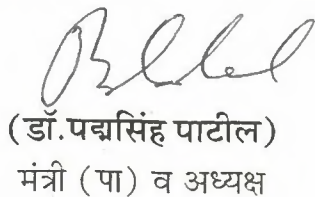 (डॉ.पद्मसिंह पाटील)
मंत्री (पा) व अध्यक्ष